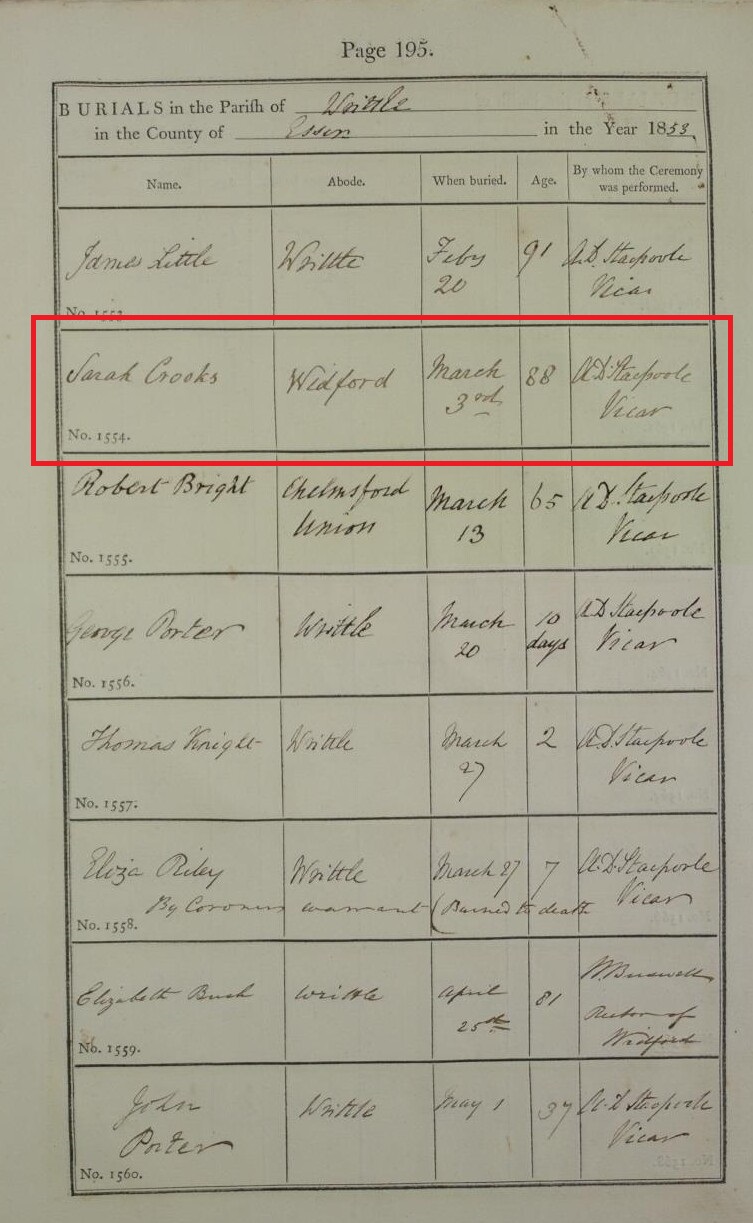 Page 195.
BURIALS in the Parish of Writtle
in the County of Essex in the Year 1853.
Name. Abode. When buried. Age. By whom the Ceremony was performed.
James Little Writtle Feby 91 A.D. Stacpoole
20 Vicar
No. 1553.
Sarah Crooks Widford March 88 A.D. Stacpoole
3rd Vicar
No. 1554.
Robert Bright Chelmsford March 65 A.D. Stacpoole
Union 13 Vicar
No. 1555.
George Porter Writtle March 10 A.D. Stacpoole
20 days Vicar
No. 1556.
Thomas Knight Writtle March 2 A.D. Stacpoole
27 Vicar
No. 1557.
Eliza Riley Writtle March 27 7 A.D. Stacpoole
By Coroners warrant (Burned to death Vicar
No. 1558.
Elizabeth Bush Writtle April 81 W. Buswell
25th Rector of
No. 1559. Widford
John Writtle May 1 37 A.D. Stacpoole
Porter Vicar
No. 1560.